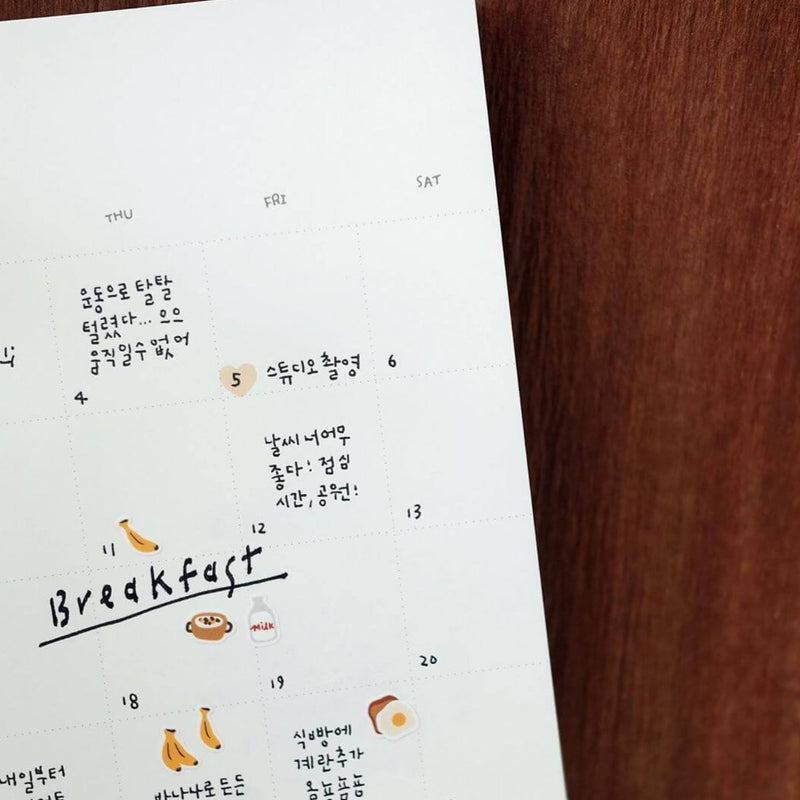 THU
FRI
SAT
운동으로 탈탈
털렸다... 으으
움직일수 없어
4
5
스튜디오 촬영
6
날씨 너어무
좋다! 점심
시간, 공원!
11
12
13
Breakfast
Milk
18
19
20
내일부터
바나나로 든든
식빵에
계란추가
욤뇸뇸뇸